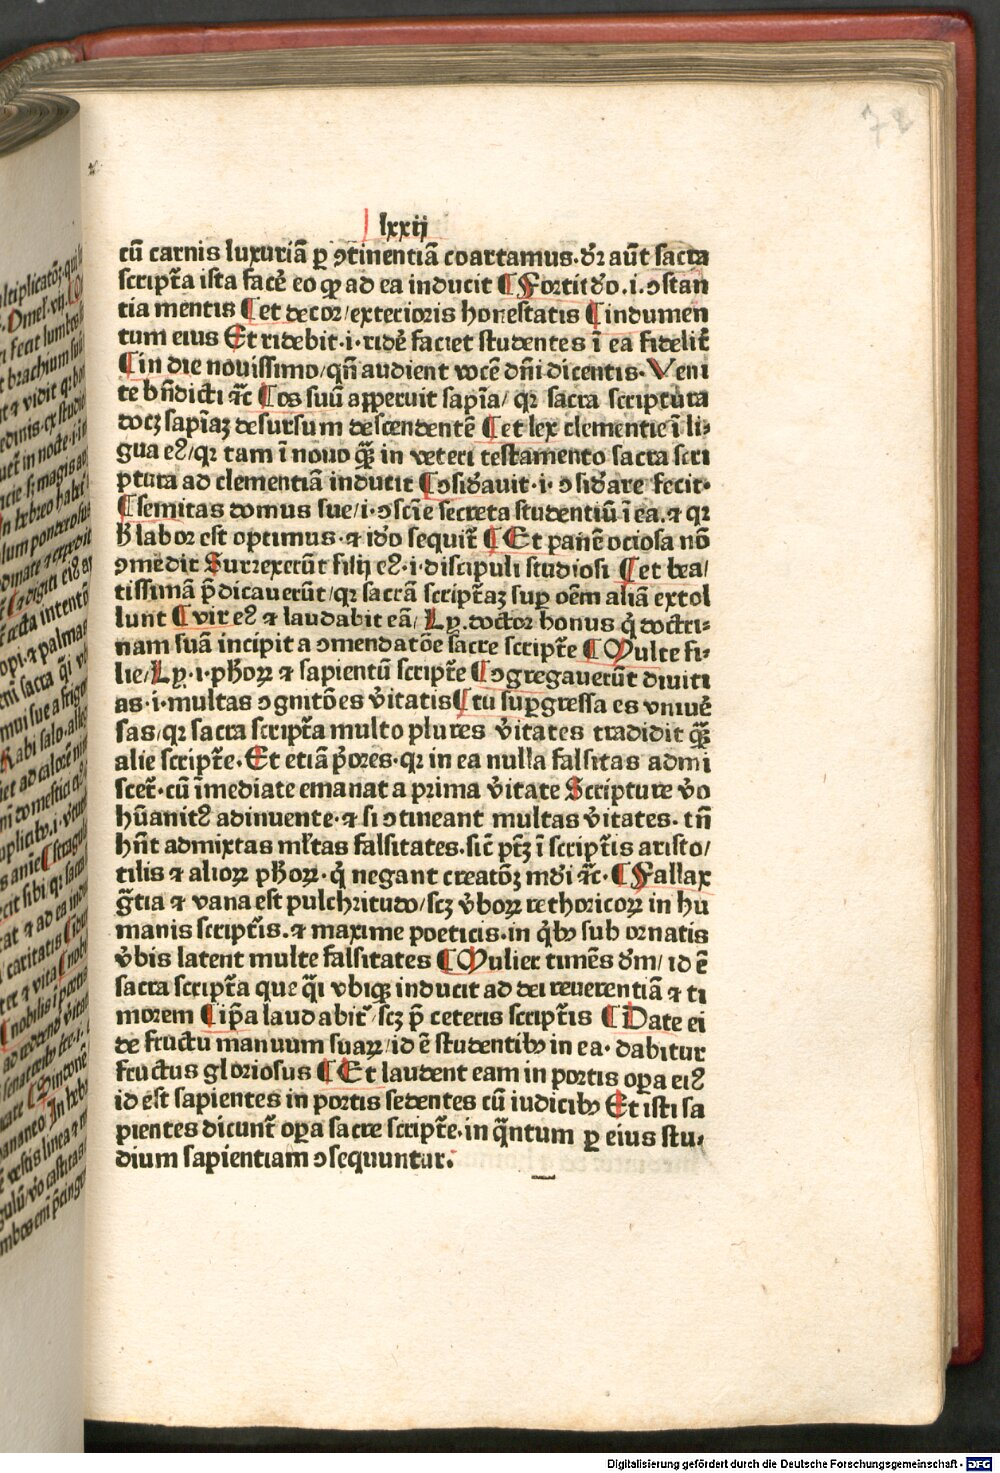 72
lxxij
cū carnis luxuriā ꝑ ꝯtinentiā coartamus. d̄r aūt sacra
script̄a ista facē eo ꝙ ad ea inducit ¶ Fortitd̄o .i. ꝯstan
tia mentis ¶ et decor/exterioris honestatis ¶ indumen
tum eius Et ridebit .i. ridē faciet studentes ī ea fidelit̄
¶ in die nouissimo/qn̄ audient vocē dn̄i dicentis. Veni
te bn̄dicti ⁊c̄ ¶ Os suū apperuit sapīa/ qꝛ sacra scriptura
docꝫ sapīaꝫ desursum descendentē ¶ et lex clementie ī li⸗
gua eꝰ/qꝛ tam ī nouo qꝫ̄ in veteri testamento sacra scri
ptura ad clementiā inducit ¶ Cōsid̄auit .i. ꝯsid̄are fecit.
¶ semitas domus sue/i. ꝯscīe secreta studentiū ī ea. ⁊ qꝛ
h̄ labor est optimus. ⁊ id̄o sequit̄ ¶ Et panē ociosa nō
ꝯmedit Surrexerūt filij eꝰ .i. discipuli studiosi ¶ et bea/
tissimā p̄dicauerūt/qꝛ sacrā script̄aꝫ suꝑ oēm aliā extol
lunt ¶ vir eꝰ ⁊ laudabit eā/ Ly. doctor bonus q̇ doctri⸗
nam suā incipit a ꝯmendatōe sacre script̄e ¶ Multe fi⸗
lie/Ly .i. ph̄oꝝ ⁊ sapientū script̄e ¶ ꝯgregauerūt diuiti
as .i. multas ꝯgnitōes v̄itatis ¶ tu suꝑgressa es vniuē
sas/qꝛ sacra script̄a multo plures v̄itates tradidit qꝫ̄
alie script̄e. Et etiā p̄ores. qꝛ in ea nulla falsitas admi
scet̄. cū īmediate emanat a prima v̄itate Scripture v̄o
hūanitꝰ adinuente. ⁊ si ꝯtineant multas v̄itates. tn̄
hn̄t admixtas ml̄tas falsitates. sic̄ ptꝫ ī script̄is aristo/
tilis ⁊ alioꝝ ph̄oꝝ. q̇ negant creatōꝫ md̄i ⁊c̄. ¶ Fallax
gr̄tia ⁊ vana est pulchritudo/scꝫ v̄boꝝ rethoricoꝝ in hu
manis script̄is. ⁊ maxime poeticis. in q̇bꝰ sub ornatis
v̄bis latent multe falsitates ¶ Mulier timēs d̄m/ id ē
sacra script̄a que q̄i vbiqꝫ inducit ad dei reuerentiā ⁊ ti
morem ¶ ip̄a laudabit̄ /scꝫ p̄ ceteris script̄is ¶ Date ei
de fructu manuum suaꝝ/id ē studentibꝰ in ea. dabitur
fructus gloriosus ¶ Et laudent eam in portis oꝑa eiꝰ
id est sapientes in portis sedentes cū iudicibꝰ Et isti sa
pientes dicunt̄ oꝑa sacre script̄e. in q̄ntum ꝑ eius stu⸗
dium sapientiam ꝯsequuntur.
Digitalisierung gefördert durch die Deutsche Forschungsgemeinschaft - DFG